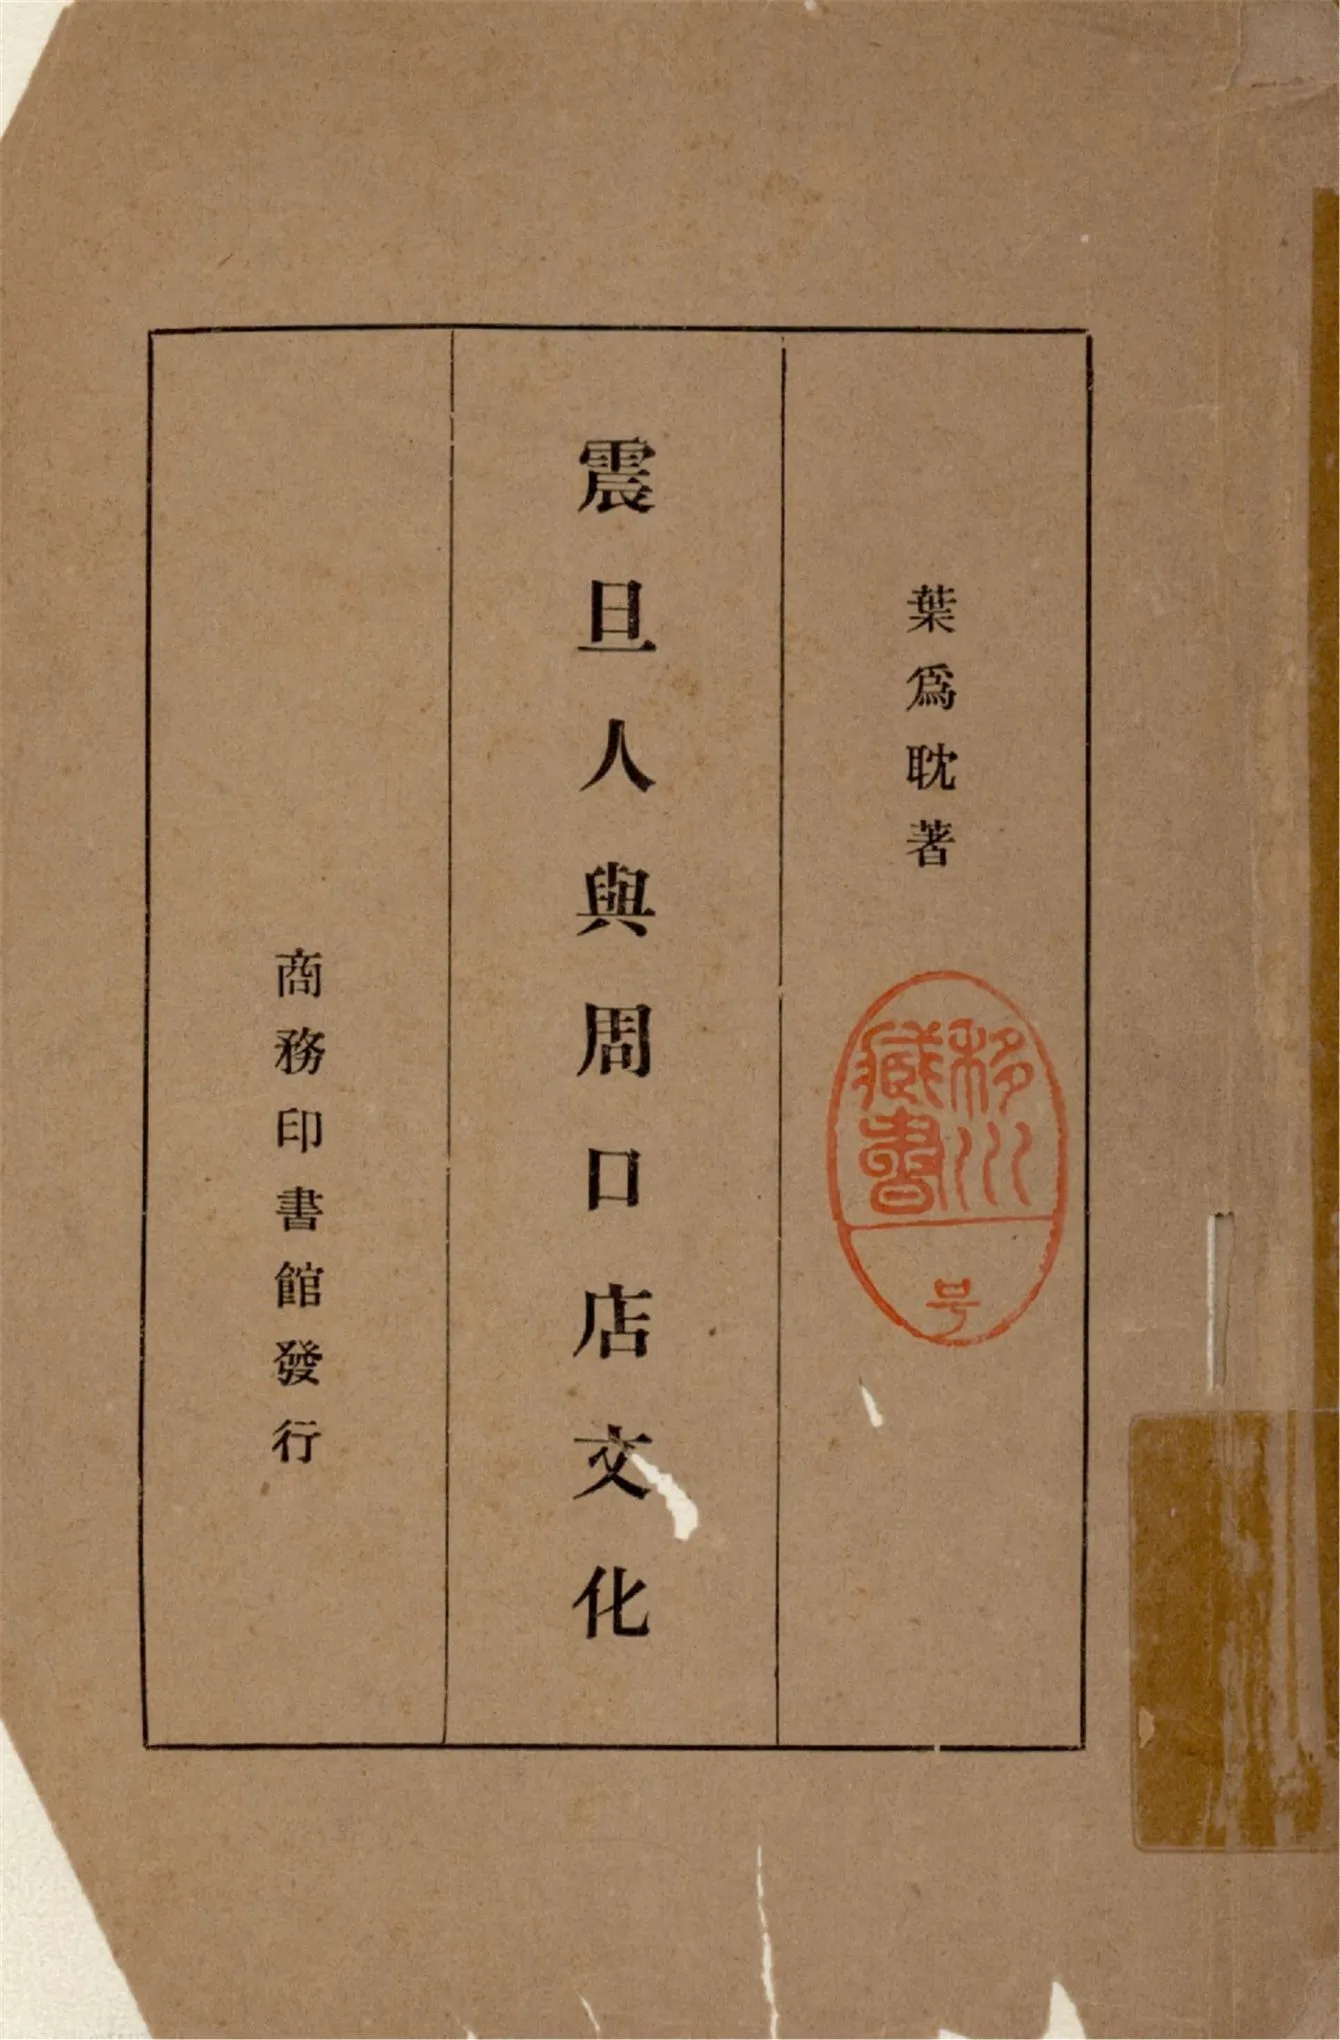 葉爲耽著
震旦人與周口店文化
商務印書館發行
移川
藏書
号